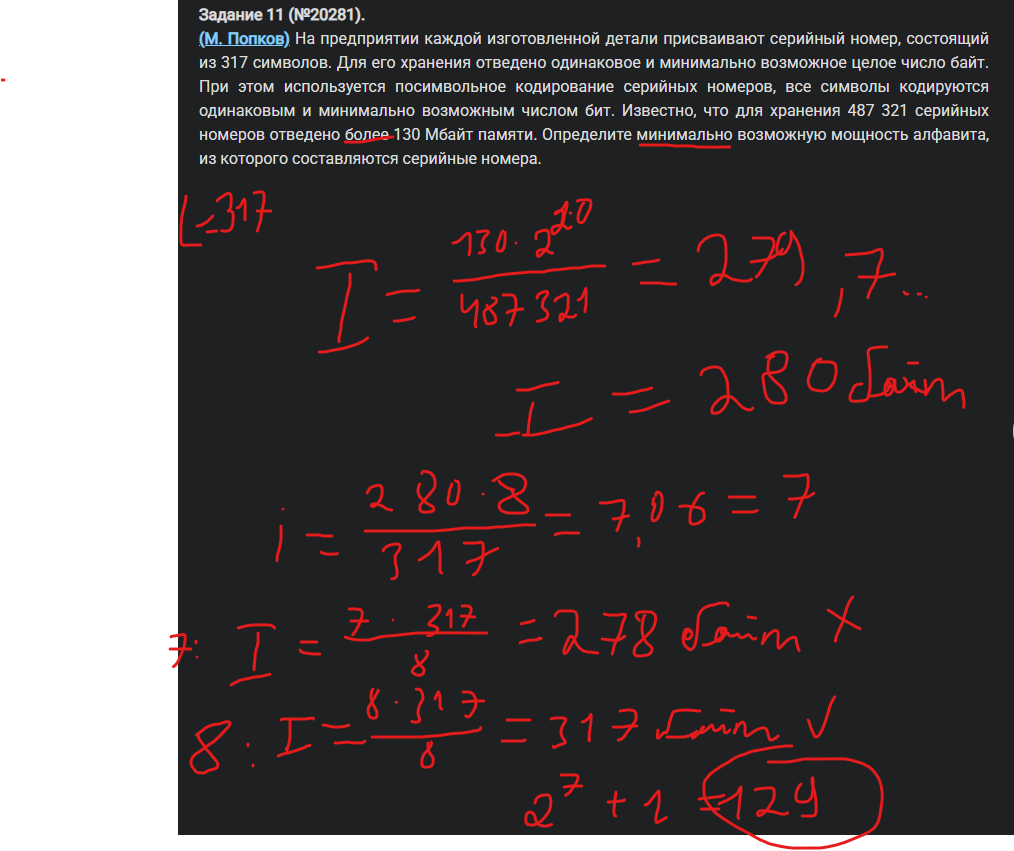 Задание 11 (№20281).
(М. Попков) На предприятии каждой изготовленной детали присваивают серийный номер, состоящий
из 317 символов. Для его хранения отведено одинаковое и минимально возможное целое число байт.
При этом используется посимвольное кодирование серийных номеров, все символы кодируются
одинаковым и минимально возможным числом бит. Известно, что для хранения 487 321 серийных
номеров отведено более 130 Мбайт памяти. Определите минимально возможную мощность алфавита,
из которого составляются серийные номера.
L=317
I = 130 · 2^20 / 487321 = 279,7...
I = 280 байт
i = 280 · 8 / 317 = 7,06 = 7
7: I = 7 · 317 / 8 = 278 байт X
8: I = 8 · 317 / 8 = 317 байт √
2^7 + 1 = 129